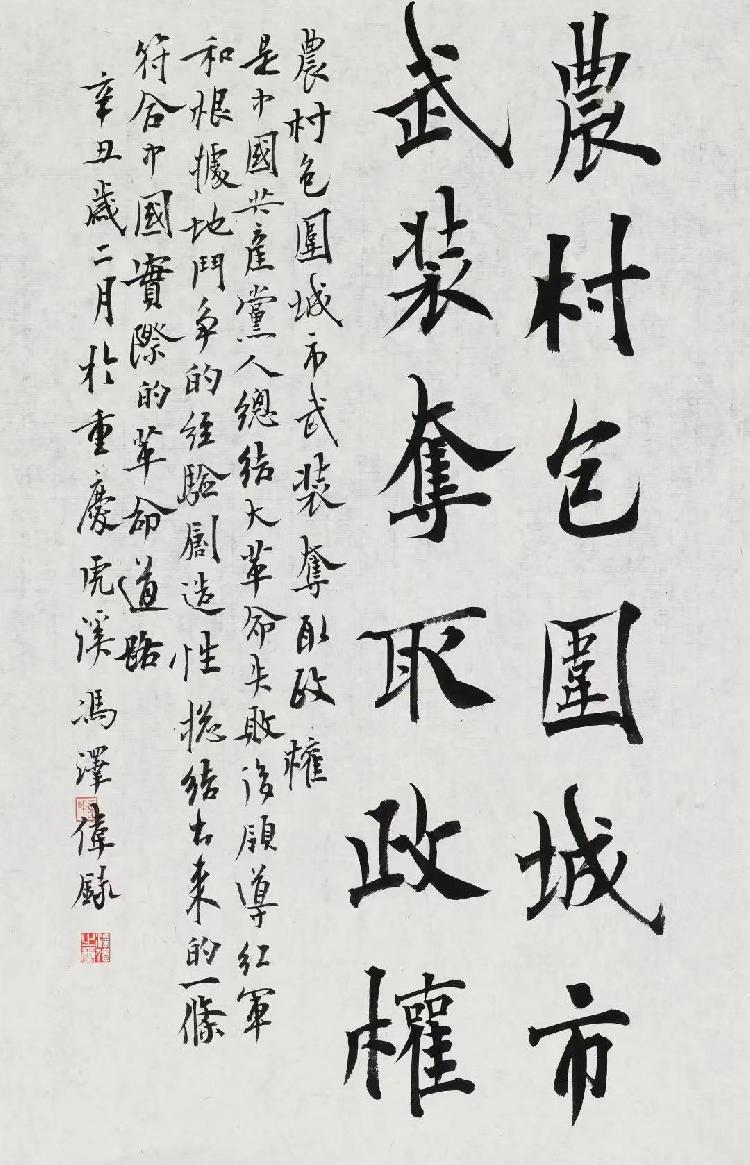 農村包圍城市
武裝奪取政權
農村包圍城市武裝奪取政權
是中國共產黨人總結大革命失敗後領導紅軍
和根據地鬥爭的經驗創造性總結出來的一條
符合中國實際的革命道路
辛丑歲二月於重慶虎溪馮澤偉錄